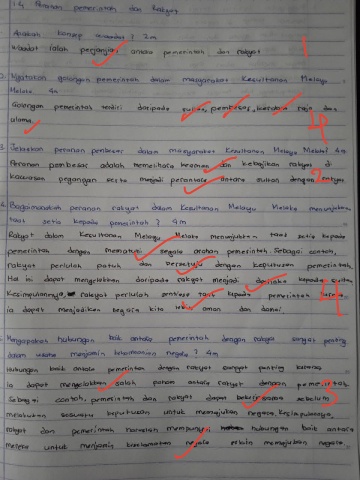 1.4 Peranan pemerintah dan Rakyat
Apakah konsep waadat ? 2m
Waadat ialah perjanjian antara pemerintah dan rakyat 1
Nyatakan golongan pemerintah dalam masyarakat Kesultanan Melayu
Melaka 4m
Golongan pemerintah terdiri daripada sultan, pembesar, kerabat raja dan
ulama. 4
3. Jelaskan peranan pembesar dalam masyarakat Kesultanan Melayu Melaka? 4m
Peranan pembesar adalah memelihara keamanan dan kebajikan rakyat di
kawasan pegangan serta menjadi perantara antara sultan dengan rakyat. 2
4. Bagaimanakah peranan rakyat dalam Kesultanan Melayu Melaka menunjukkan
taat setia kepada pemerintah ? 4m
Rakyat dalam Kesultanan Melayu Melaka menunjukkan taat setia kepada
pemerintah dengan mematuhi segala arahan pemerintah. Sebagai contoh,
rakyat perlulah patuh dan bersetuju dengan keputusan pemerintah
Hal ini dapat mengelakkan daripada rakyat menjadi derhaka kepada sultan
Kesimpulannya, rakyat perlulah sentiasa taat kepada pemerintah kerana 4
ia dapat menjadikan negara kita aman dan damai.
Mengapakah hubungan baik antara pemerintah dengan rakyat sangat penting
dalam usaha menjamin keselamatan negara ? 4m
Hubungan baik antara pemerintah dengan rakyat sangat penting kerana
ia dapat mengelakkan salah faham antara rakyat dengan pemerintah.
Sebagai contoh, pemerintah dan rakyat dapat bekerjasama sebelum 3
melakukan sesuatu keputusan untuk memajukan negara. Kesimpulannya,
rakyat dan pemerintah haruslah mempunyai hubungan baik antara
mereka untuk menjamin keselamatan negara selain memajukan negara.